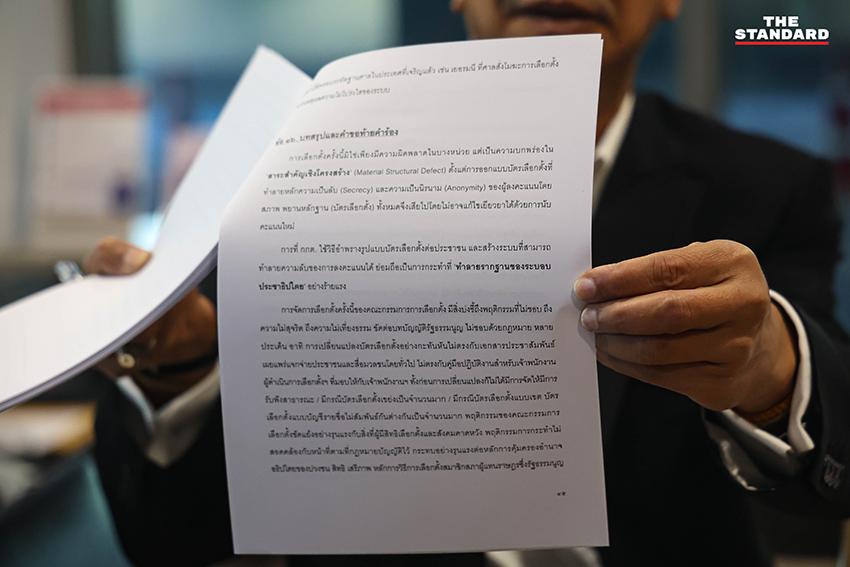 THE
STANDARD
ฐานศาลในประเทศที่เจริญแล้ว เช่น เยอรมนี ที่ศาลสั่งโมฆะการเลือกตั้ง
ความไม่โปร่งใสของระบบ
ข้อ ๑๒. บทสรุปและคำขอท้ายคำร้อง
การเลือกตั้งครั้งนี้มิใช่เพียงมีความผิดพลาดในบางหน่วย แต่เป็นความบกพร่องใน
'สาระสำคัญเชิงโครงสร้าง' (Material Structural Defect) ตั้งแต่การออกแบบบัตรเลือกตั้งที่
ทำลายหลักความเป็นลับ (Secrecy) และความเป็นนิรนาม (Anonymity) ของผู้ลงคะแนนโดย
สภาพ พยานหลักฐาน (บัตรเลือกตั้ง) ทั้งหมดจึงเสียไปโดยไม่อาจแก้ไขเยียวยาได้ด้วยการนับ
คะแนนใหม่
การที่ กกต. ใช้วิธีอำพรางรูปแบบบัตรเลือกตั้งต่อประชาชน และสร้างระบบที่สามารถ
ทำลายความลับของการลงคะแนนได้ ย่อมถือเป็นการกระทำที่ 'ทำลายรากฐานของระบอบ
ประชาธิปไตย' อย่างร้ายแรง
การจัดการเลือกตั้งครั้งนี้ของคณะกรรมการการเลือกตั้ง มีสิ่งบ่งชี้ถึงพฤติกรรมที่ไม่ชอบ ถึง
ความไม่สุจริต ถึงความไม่เที่ยงธรรม ขัดต่อบทบัญญัติรัฐธรรมนูญ ไม่ชอบด้วยกฎหมาย หลาย
ประเด็น อาทิ การเปลี่ยนแปลงบัตรเลือกตั้งอย่างกะทันหันไม่ตรงกับเอกสารประชาสัมพันธ์
เผยแพร่แจกจ่ายประชาชนและสื่อมวลชนโดยทั่วไป ไม่ตรงกับคู่มือปฏิบัติงานสำหรับเจ้าพนักงาน
ผู้ดำเนินการเลือกตั้งฯ ที่มอบให้กับเจ้าพนักงานฯ ทั้งก่อนการเปลี่ยนแปลงก็ไม่ได้มีการจัดให้มีการ
รับฟังสาธารณะ / มีกรณีบัตรเลือกตั้งเขย่งเป็นจำนวนมาก / มีกรณีบัตรเลือกตั้งแบบเขต บัตร
เลือกตั้งแบบบัญชีรายชื่อไม่สัมพันธ์กันต่างกันเป็นจำนวนมาก พฤติกรรมของคณะกรรมการ
เลือกตั้งขัดแย้งอย่างรุนแรงกับสิ่งที่ผู้มีสิทธิเลือกตั้งและสังคมคาดหวัง พฤติกรรมการกระทำไม่
สอดคล้องกับหน้าที่ตามที่กฎหมายบัญญัติไว้ กระทบอย่างรุนแรงต่อหลักการคุ้มครองอำนาจ
อธิปไตยของปวงชน สิทธิ เสรีภาพ หลักการวิธีการเลือกตั้งสมาชิกสภาผู้แทนราษฎรซึ่งรัฐธรรมนูญ
๔๕